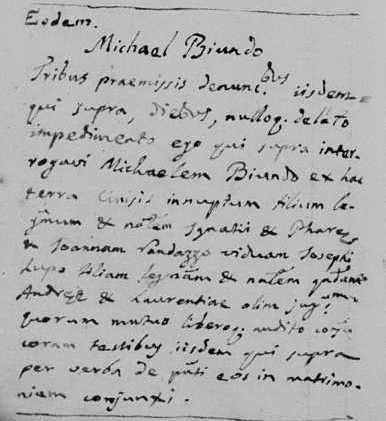 Eodem.
Michael Biundo
Tribus praemissis denunc.bus iisdem
qui supra, diebus, nulloq. delato
impedimento ego qui supra inter-
rogavi Michaelem Biundo ex hac
terra Cinisis innuptum filium le-
gmum & nalem Ignatii &
& Joannam Randazzo viduam Josephi
Lupo filiam legmam & nalem
Andreę & Laurentiae olim jugm
quorum mutuo libereq. audito consu
coram testibus iisdem qui supra
per verba de pnti eos in matrimo-
nium conjunxi.